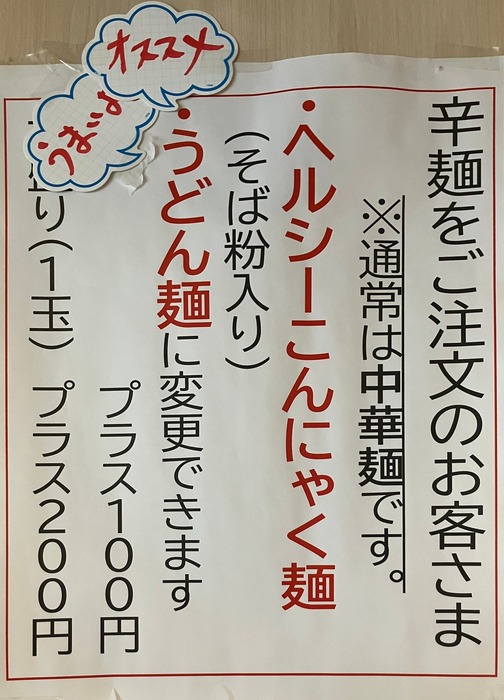 オススメ
うまいよ
辛麺をご注文のお客さま
※通常は中華麺です。
・ヘルシーこんにゃく麺
(そば粉入り)
・うどん麺に変更できます
プラス100円
り(1玉) プラス200円